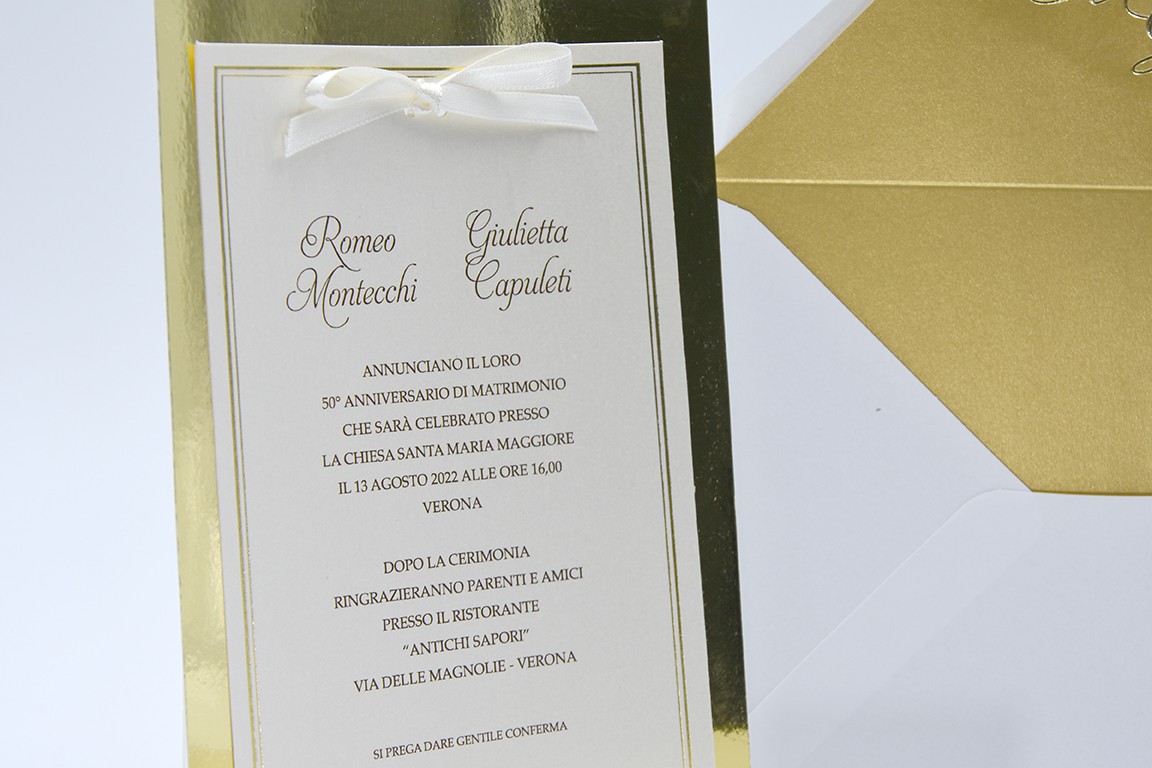 Romeo Giulietta
Montecchi Capuleti
ANNUNCIANO IL LORO
50° ANNIVERSARIO DI MATRIMONIO
CHE SARÀ CELEBRATO PRESSO
LA CHIESA SANTA MARIA MAGGIORE
IL 13 AGOSTO 2022 ALLE ORE 16,00
VERONA
DOPO LA CERIMONIA
RINGRAZIERANNO PARENTI E AMICI
PRESSO IL RISTORANTE
“ANTICHI SAPORI”
VIA DELLE MAGNOLIE - VERONA
SI PREGA DARE GENTILE CONFERMA